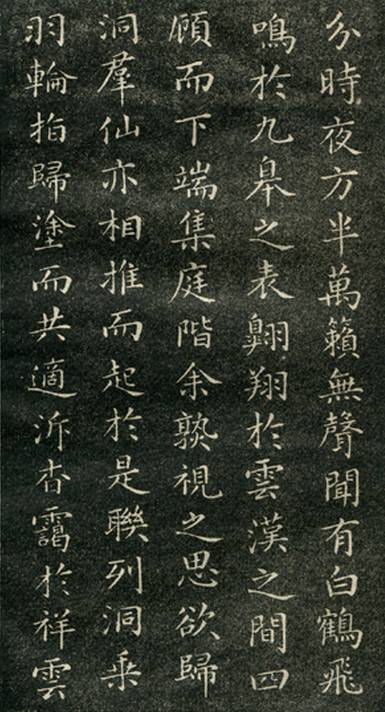 分時夜方半萬籟無聲聞有白鶴飛
鳴於九皋之表翱翔於雲漢之間四
顧而下端集庭階余熟視之思欲歸
洞羣仙亦相推而起於是聯列洞乘
羽輪指歸塗而共適泝杳靄於祥雲